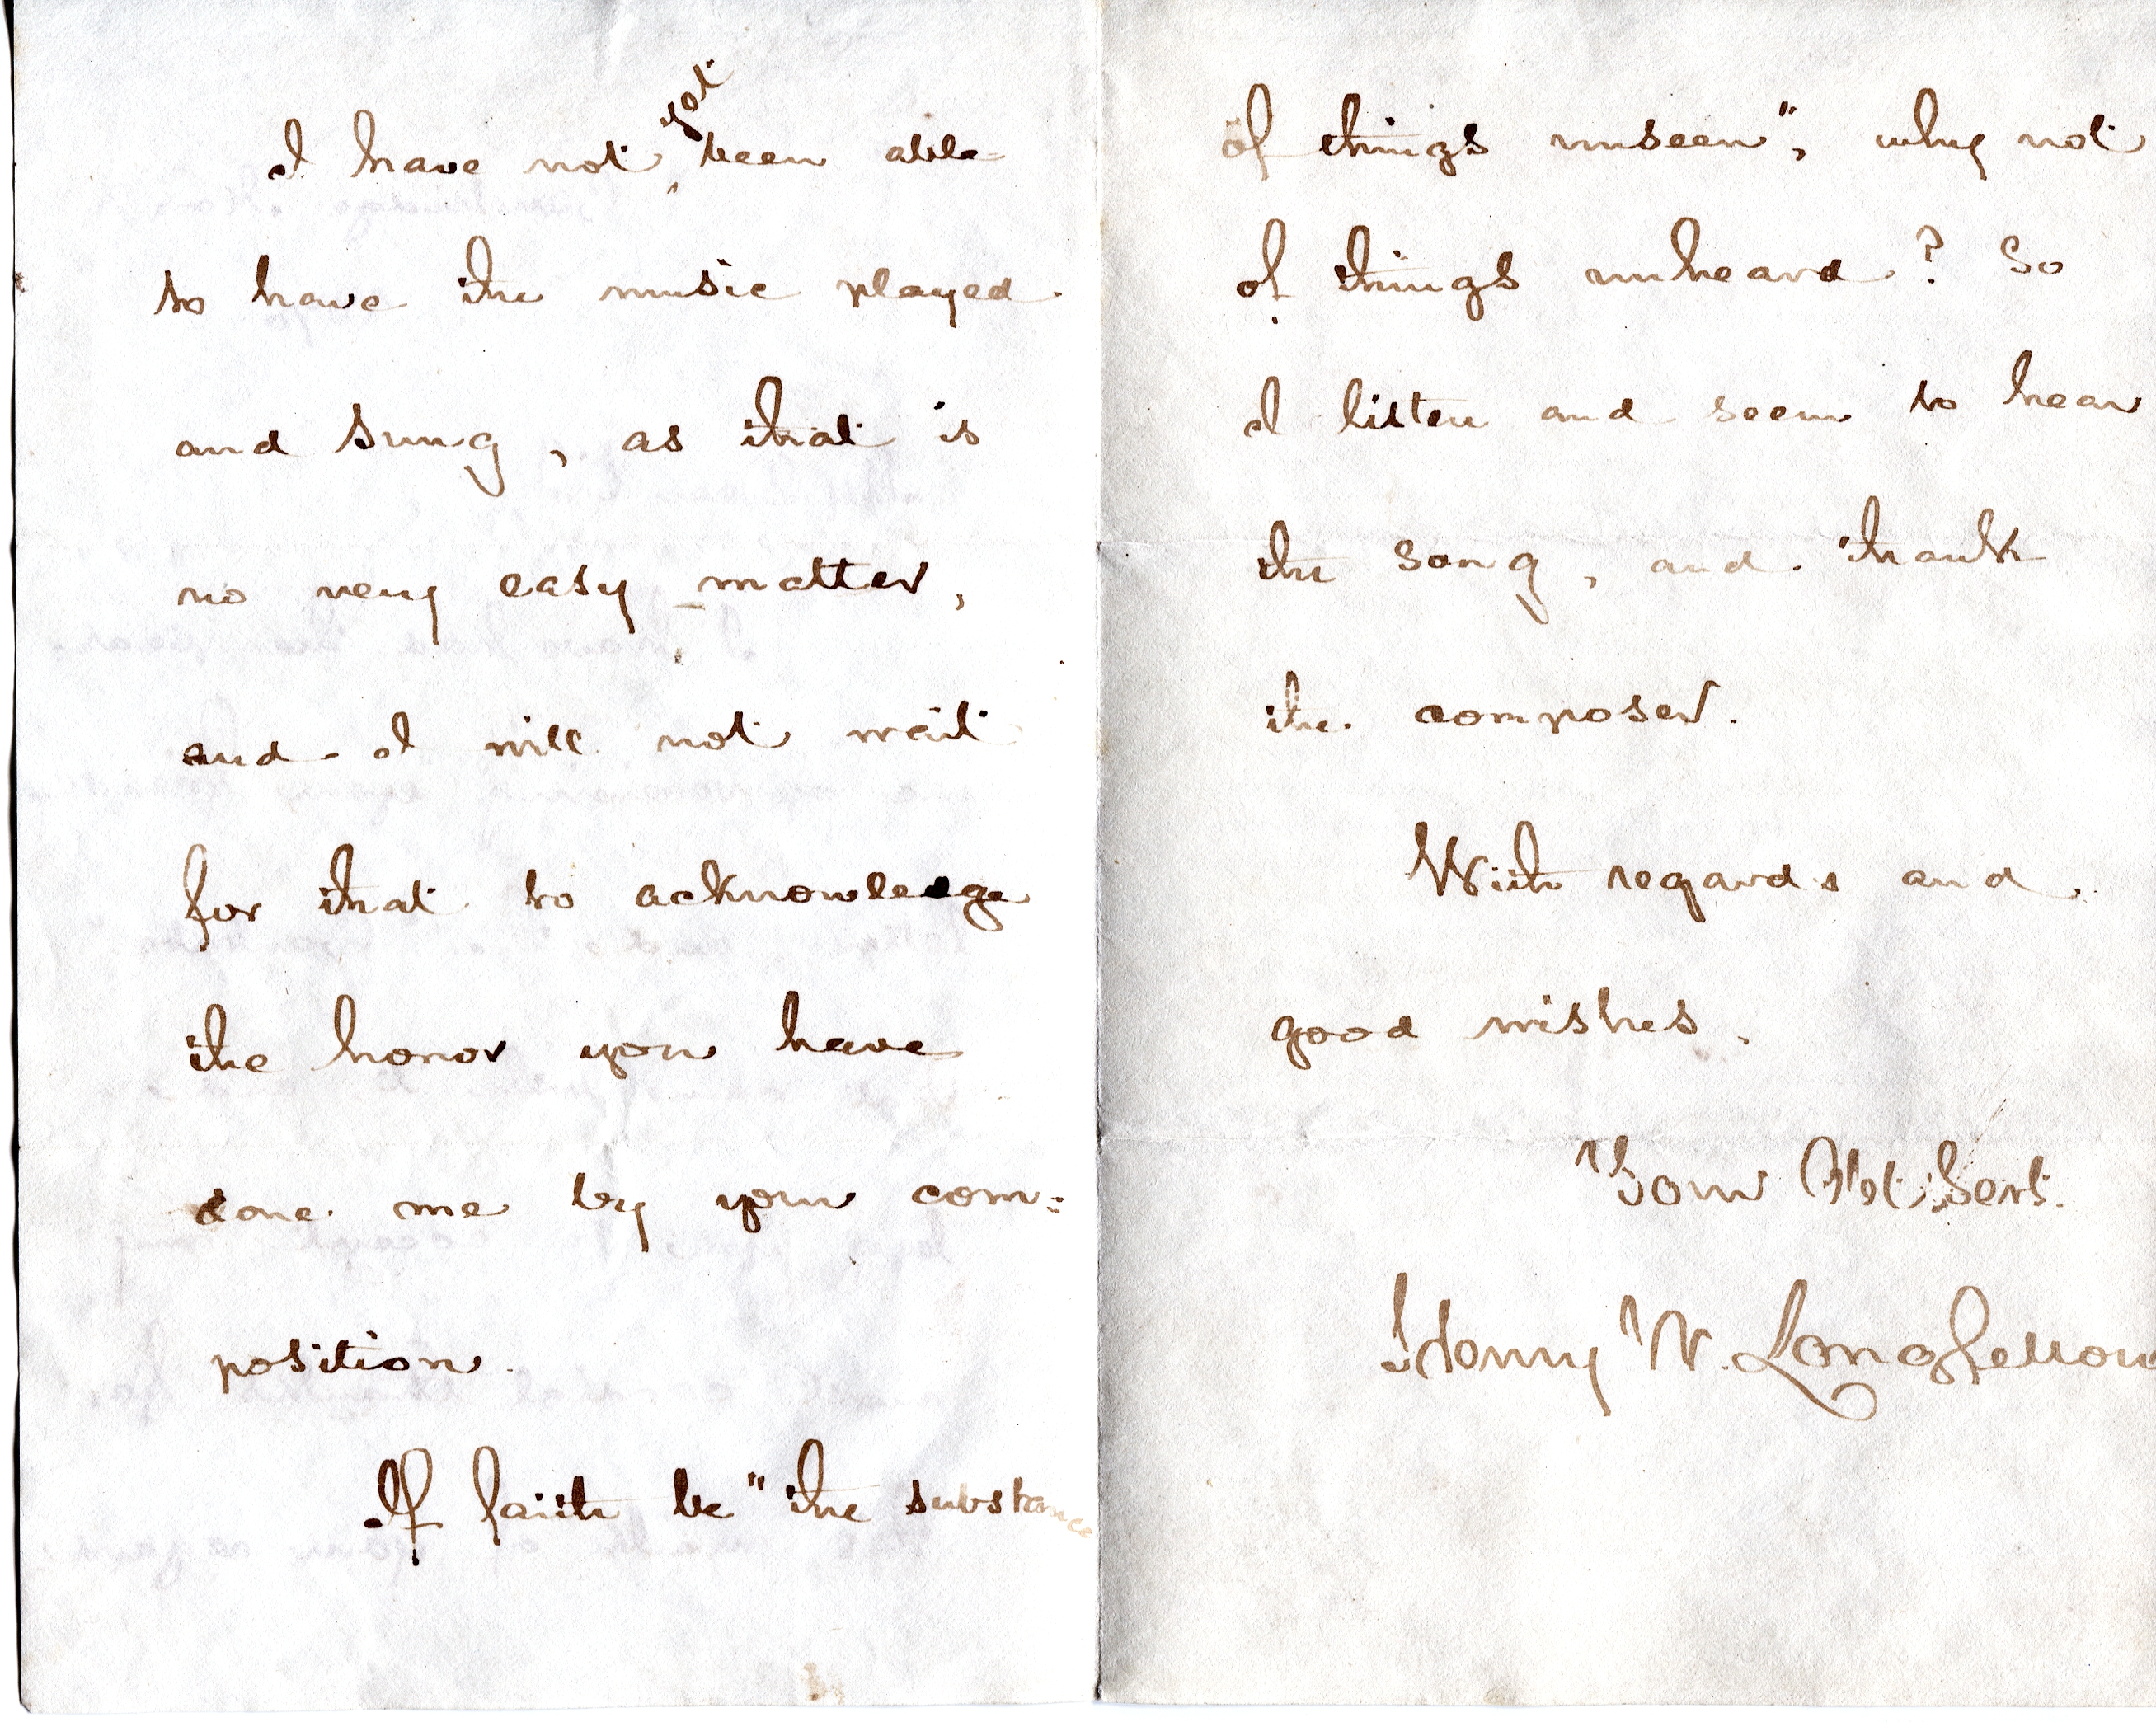 I have not yet been able
to have the music played
and sung, as that is
no very easy matter,
and I will not wait
for that to acknowledge
the honor you have
done me by your com=
position.
If faith be "the substance
of things unseen", why not
of things unheard? So
I listen and seem to hear
the song, and thank
the composer.
With regards and
good wishes,
Your Obt. Sert.
Henry W. Longfellow